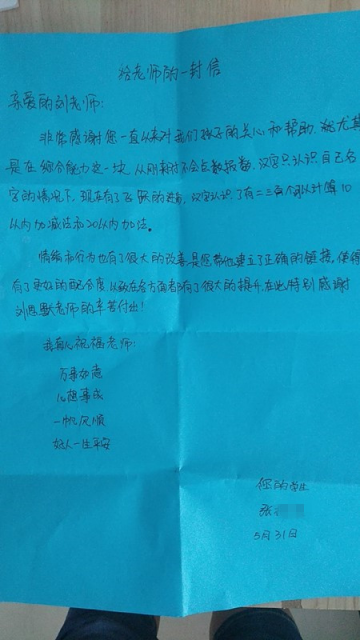 给老师的一封信
亲爱的刘老师：
非常感谢您一直以来对我们孩子的关心和帮助，尤其
是在综合能力这一块，从刚来时不会点数报数，汉字只认识自己名
字的情况下，现在有了飞跃的进步，汉字认识了有二三百个，可以计算10
以内加减法和20以内加法。
情绪和行为也有了很大的改善，是您帮他建立了正确的链接，使得
有了更好的配合度，从而在各方面都有了很大的提升，在此特别感谢
刘思默老师的辛苦付出！
我衷心祝福老师：
万事如意
心想事成
一帆风顺
好人一生平安
您的学生
张
5月31日